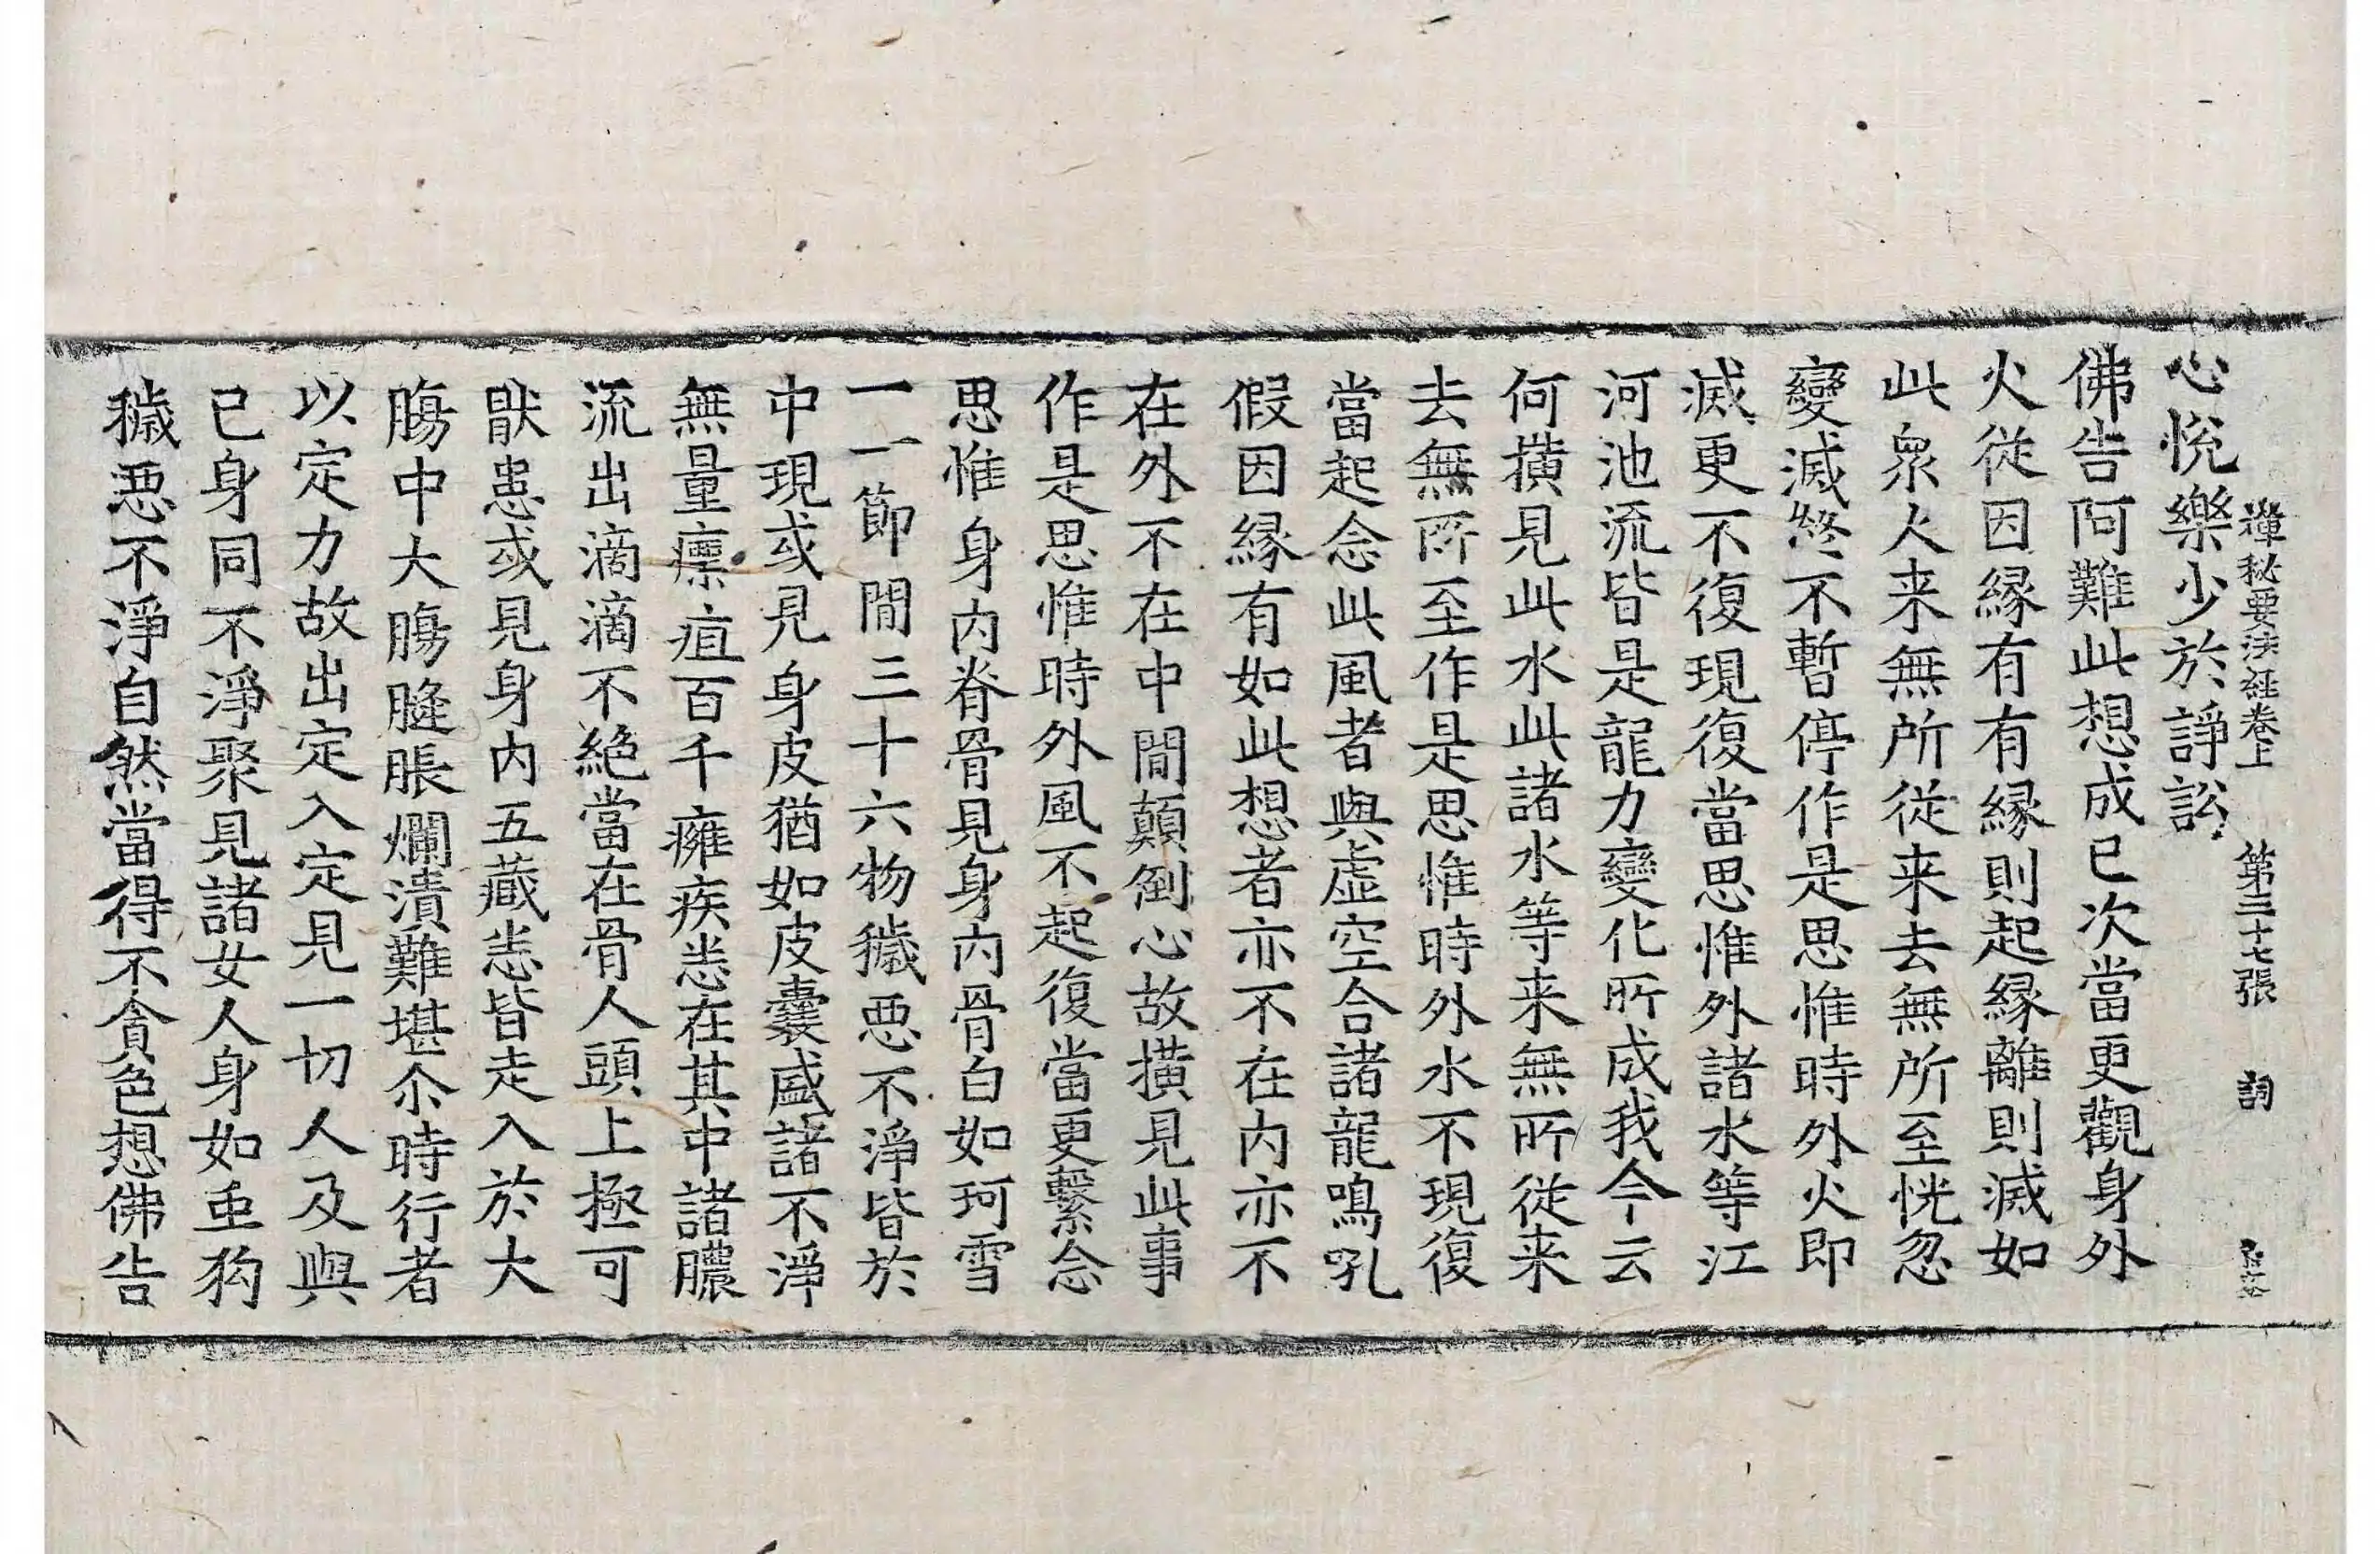 禪秘要法經卷上 第三十七張 詞
心悅樂少於諍訟
佛告阿難此想成已次當更觀身外
火從因緣有有緣則起緣離則滅如
此衆火来無所從来去無所至恍忽
變滅終不暫停作是思惟時外火即
滅更不復現復當思惟外諸水等江
河池流皆是龍力變化所成我今云
何撗見此水此諸水等来無所從来
去無所至作是思惟時外水不現復
當起念此風者與虛空合諸龍鳴吼
假因緣有如此想者亦不在內亦不
在外不在中間顛倒心故撗見此事
作是思惟時外風不起復當更繫念
思惟身內脊骨見身內骨白如珂雪
一一節間三十六物穢惡不淨皆於
中現或見身皮猶如皮囊盛諸不淨
無量癝疽百千癰疾悉在其中諸膿
流出滴滴不絕當在骨人頭上極可
猒患或見身內五藏悉皆走入於大
膓中大膓膖脹爛潰難堪尒時行者
以定力故出定入定見一切人及與
已身同不淨聚見諸女人身如䖝狗
穢惡不淨自然當得不貪色想佛告